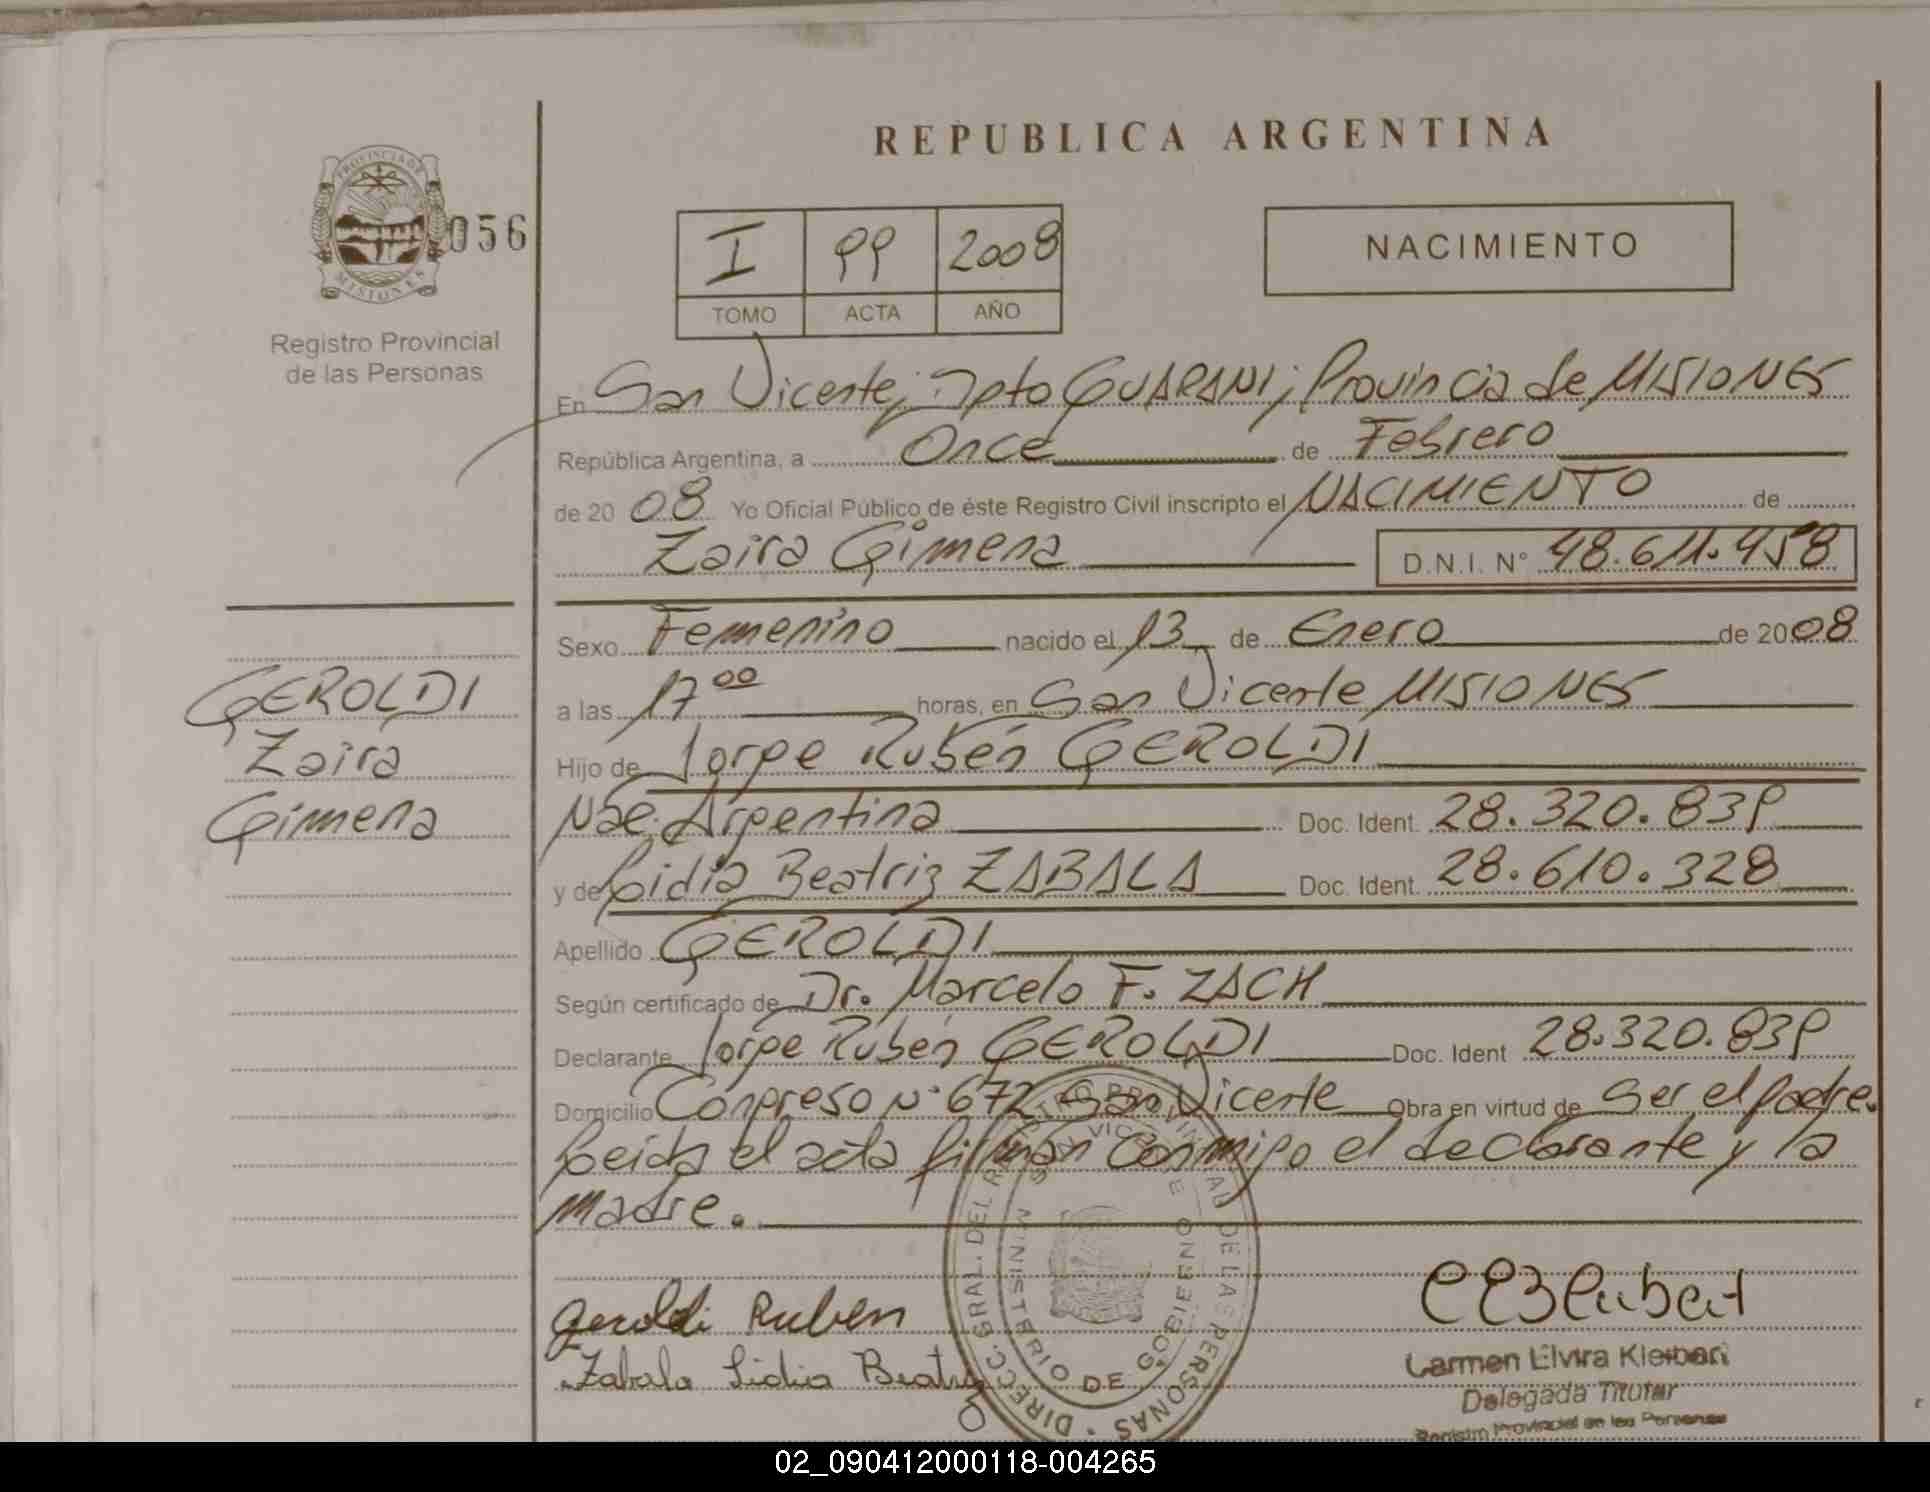 REPUBLICA ARGENTINA
PROVINCIA DE
MISIONES
056
Registro Provincial
de las Personas
I 99 2008
TOMO ACTA AÑO
NACIMIENTO
En San Vicente, Dpto GUARANI, Provincia de MISIONES
República Argentina, a Once de Febrero
de 20 08 Yo Oficial Público de éste Registro Civil inscripto el NACIMIENTO de
Zaira Gimena D.N.I. N° 48.611.458
Sexo Femenino nacido el 13 de Enero de 2008
a las 17 00 horas, en San Vicente MISIONES
Hijo de Jorge Rubén GEROLDI
Nac. Argentina Doc. Ident. 28.320.839
y de Lidia Beatriz ZABALA Doc. Ident. 28.610.328
Apellido GEROLDI
Según certificado de Dr. Marcelo F. ZACH
Declarante Jorge Rubén GEROLDI Doc. Ident 28.320.839
Domicilio Congreso N° 672 San Vicente Obra en virtud de Ser el padre.
Leida el acta firman Conmigo el declarante y la
madre.
GEROLDI
Zaira
Gimena
Geroldi Ruben
Zabala Lidia Beatriz
DIRECC. GRAL. DEL REGISTRO PROVINCIAL DE LAS PERSONAS
SAN VICENTE
MINISTERIO DE GOBIERNO
Carmen Elvira
Delegada Titular
Registro Provincial de las Personas
02_090412000118-004265